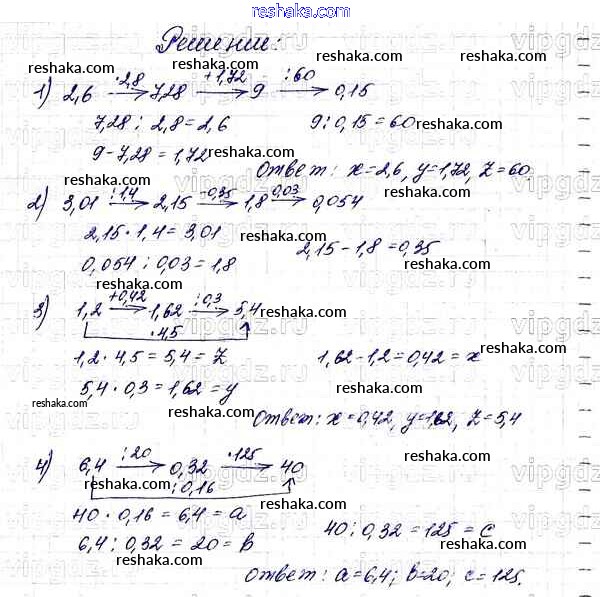 reshaka.com
Решение:
reshaka.com reshaka.com reshaka.com
1) 2,6 →(·2,8) 7,28 →(+1,72) 9 →(:60) 0,15
7,28 : 2,8 = 2,6 9 : 0,15 = 60
reshaka.com reshaka.com
9 - 7,28 = 1,72 reshaka.com
Ответ: x = 2,6, y = 1,72, z = 60
reshaka.com reshaka.com
2) 3,01 →(:1,4) 2,15 →(-0,35) 1,8 →(·0,03) 0,054
2,15 · 1,4 = 3,01 reshaka.com 2,15 - 1,8 = 0,35
0,054 : 0,03 = 1,8 reshaka.com
reshaka.com
3) 1,2 →(+0,42) 1,62 →(:0,3) 5,4 reshaka.com
·4,5
1,2 · 4,5 = 5,4 = z 1,62 - 1,2 = 0,42 = x
reshaka.com
5,4 · 0,3 = 1,62 = y
reshaka.com reshaka.com reshaka.com
Ответ: x = 0,42, y = 1,62, z = 5,4
reshaka.com
4) 6,4 →(:20) 0,32 →(·125) 40 reshaka.com
:0,16
40 · 0,16 = 6,4 = a reshaka.com 40 : 0,32 = 125 = c
6,4 : 0,32 = 20 = b reshaka.com
reshaka.com Ответ: a = 6,4; b = 20; c = 125.